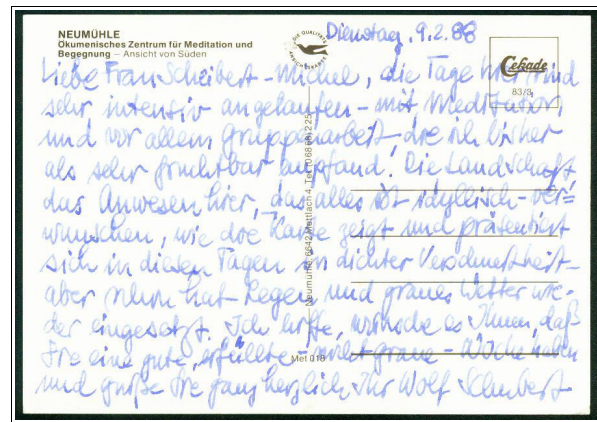 NEUMÜHLE
Ökumenisches Zentrum für Meditation und
Begegnung – Ansicht von Süden
DIE QUALITÄTS
ANSICHTSKARTE
Cekade
83/3
Dienstag, 9.2.88
Liebe Frau Scheibert-Michel, die Tage hier sind
sehr intensiv angelaufen – mit Meditation
und vor allem Gruppenarbeit, die ich bisher
als sehr fruchtbar empfand! Die Landschaft
das Anwesen hier, das alles ist idyllisch-ver=
wunschen, wie die Karte zeigt und präsentiert
sich in diesen Tagen in dichter Verschneitheit –
aber schon hat Regen und graues Wetter wie-
der eingesetzt. Ich hoffe, wünsche es Ihnen, daß
Sie eine gute, erfüllte – nicht graue – Woche haben
und grüße Sie ganz herzlich, Ihr Wolf
Neumühle, 6642 Mettlach 4, Tel.
Met 018